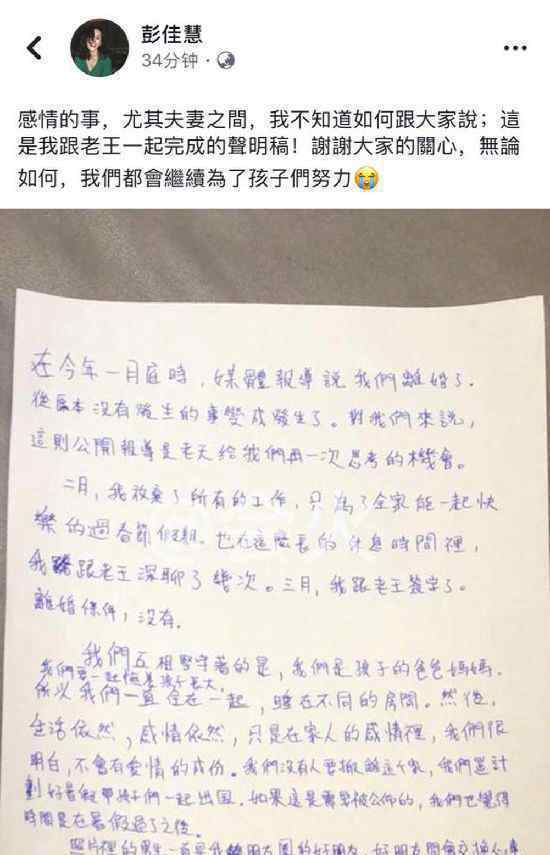 彭佳慧
34分钟 ·
感情的事，尤其夫妻之間，我不知道如何跟大家說；這
是我跟老王一起完成的聲明稿！謝謝大家的關心，無論
如何，我們都會繼續為了孩子們努力😭
在今年一月底時，媒體報導說我們離婚了.
從原本沒有發生的事變成發生了。對我們來說，
這則公開報導是老天給我們再一次思考的機會。
二月，我放棄了所有的工作，只為了全家能一起快
樂的過春節假期. 也在這麼長的休息時間裡，
我跟老王深聊了幾次。三月，我跟老王簽字了。
離婚條件，沒有.
我們互相堅守著的是，我們是孩子的爸爸媽媽.
我們要一起陪著孩子長大.
所以我們一直住在一起，睡在不同的房間。然後，
生活依然，感情依然，只是在家人的感情裡，我們很
明白，不會有愛情的成份。我們沒有人要搬離這個家，我們還計
劃好暑假帶孩子們一起出國. 如果這是需要被公佈的，我們也覺得
時間是在暑假過了之後。
照片裡的男生一直是我朋友圈的好朋友. 好朋友間會交換心事